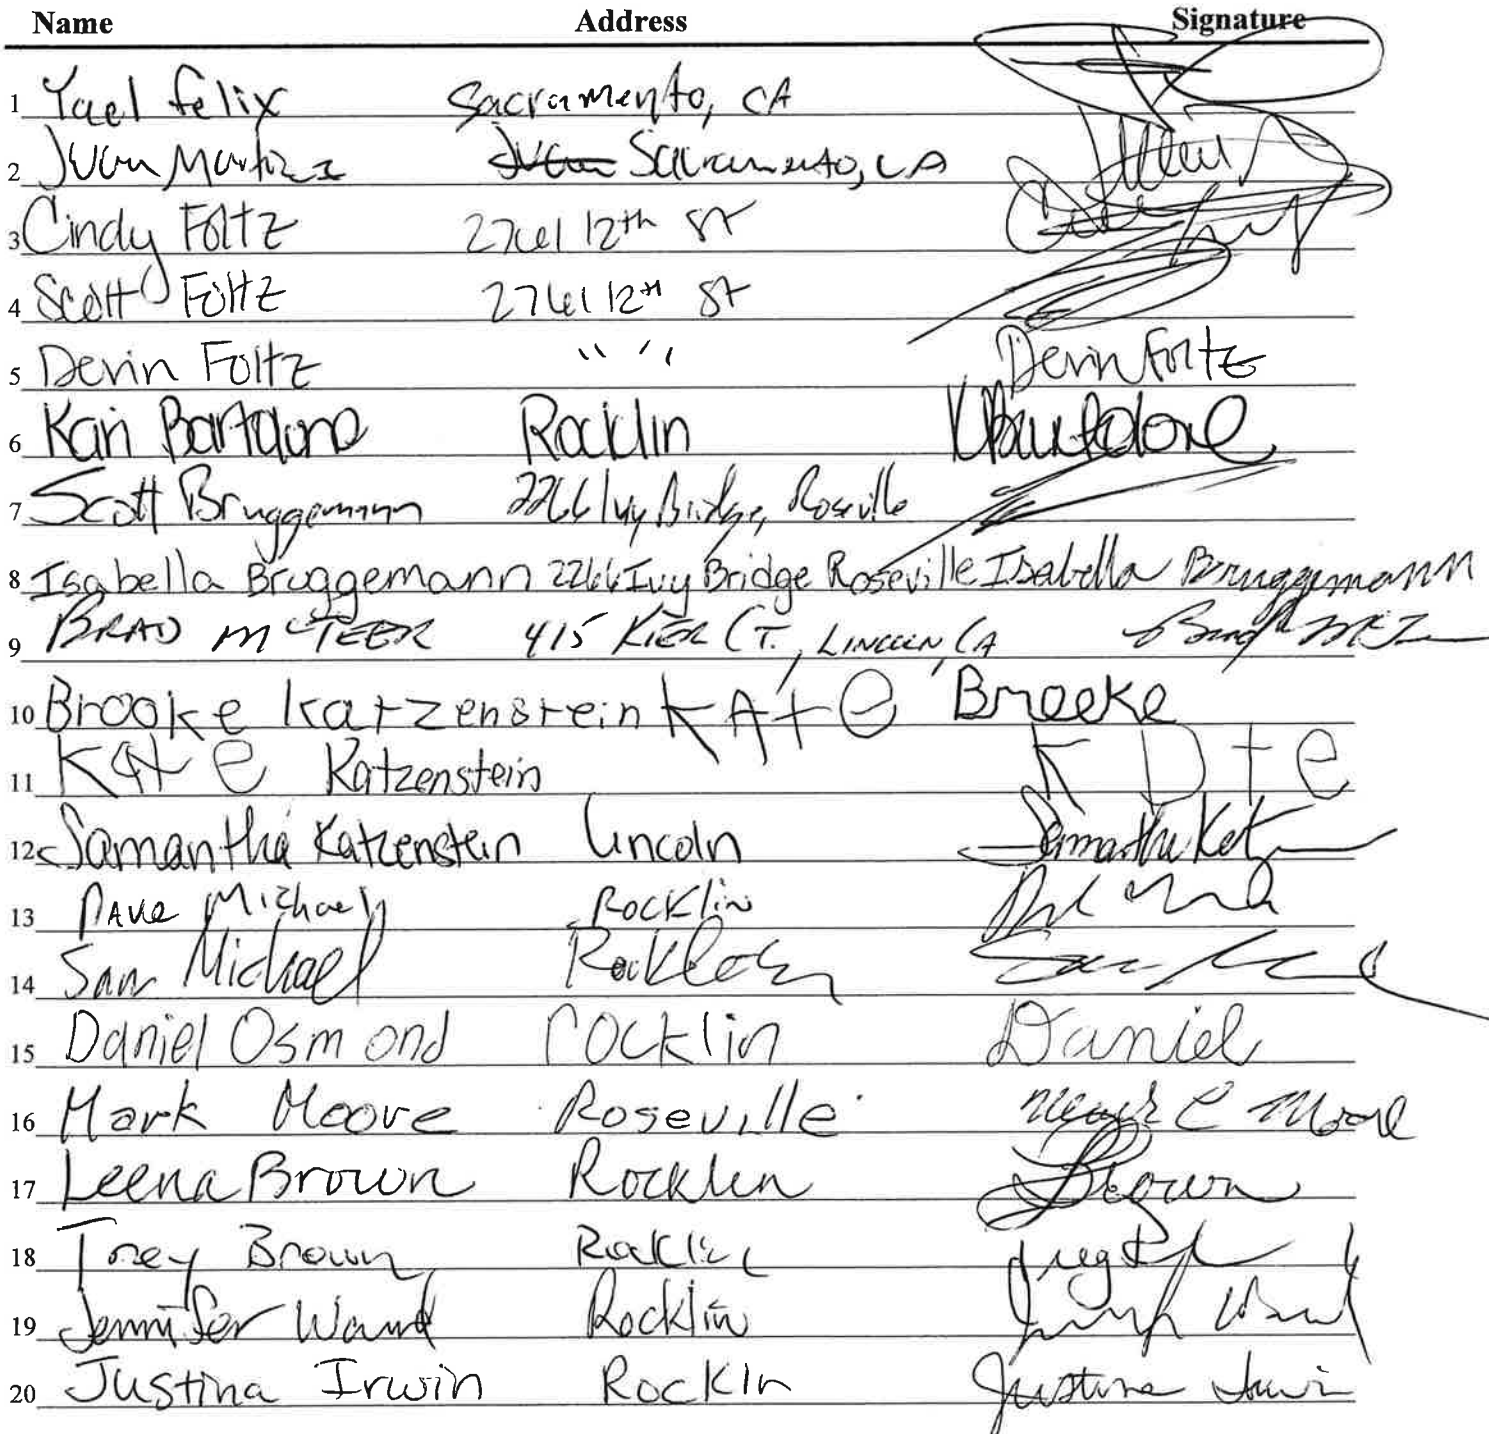 Name Address Signature
1 Yael Felix Sacramento, CA
2 Juan Martinez Juan Sacramento, CA
3 Cindy Foltz 2761 12th St
4 Scott Foltz 2761 12th St
5 Devin Foltz " " Devin Foltz
6 Kari Bartdone Rocklin KBartdone
7 Scott Bruggemann 2266 Ivy Bridge, Roseville
8 Isabella Bruggemann 2266 Ivy Bridge Roseville Isabella Bruggemann
9 BRAD McTEER 415 KIER CT., LINCOLN, CA Brad McT
10 Brooke Katzenstein KAte Brooke
11 Kate Katzenstein KDte
12 Samantha Katzenstein Lincoln Samantha Katz
13 Dave Michael Rocklin
14 Sam Michael Rocklin
15 Daniel Osmond rocklin Daniel
16 Mark Moore Roseville Mark C Moore
17 Leena Brown Rocklin Brown
18 Trey Brown Rocklin
19 Jennifer Ward Rocklin
20 Justina Irwin Rockln Justina Irwin